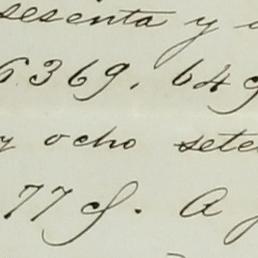 sesenta y
6369. 649
y ocho sete
77 cs. A